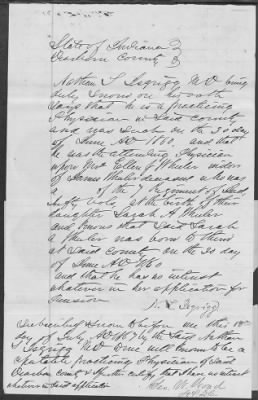 State of Indiana
Dearborn County
Nathan L. Isgrigg M.D. being
duly sworn on his oath
says that he is a practicing
Physician in said County
and was such on the 30 day
of June AD 1860, and that
he was the attending Physician
upon Mrs Ellen Wheeler widow
of James Wheeler deceased who was
a of the 7 Regiment of Ind
Infty Vols at the birth of their
daughter Sarah A Wheeler
and knows that said Sarah
A Wheeler was born to them
at said County on the 30 day
of June AD 1860
and that he has no interest
whatever in her application for
Pension
N. L. Isgrigg
Subscribed & sworn to before me this
day of July AD 1867 by the said Nathan
L Isgrigg M.D. whom I know to be a
reputable practicing Physician of said
Dearborn County & further certify that I have no interest
whatever in said application